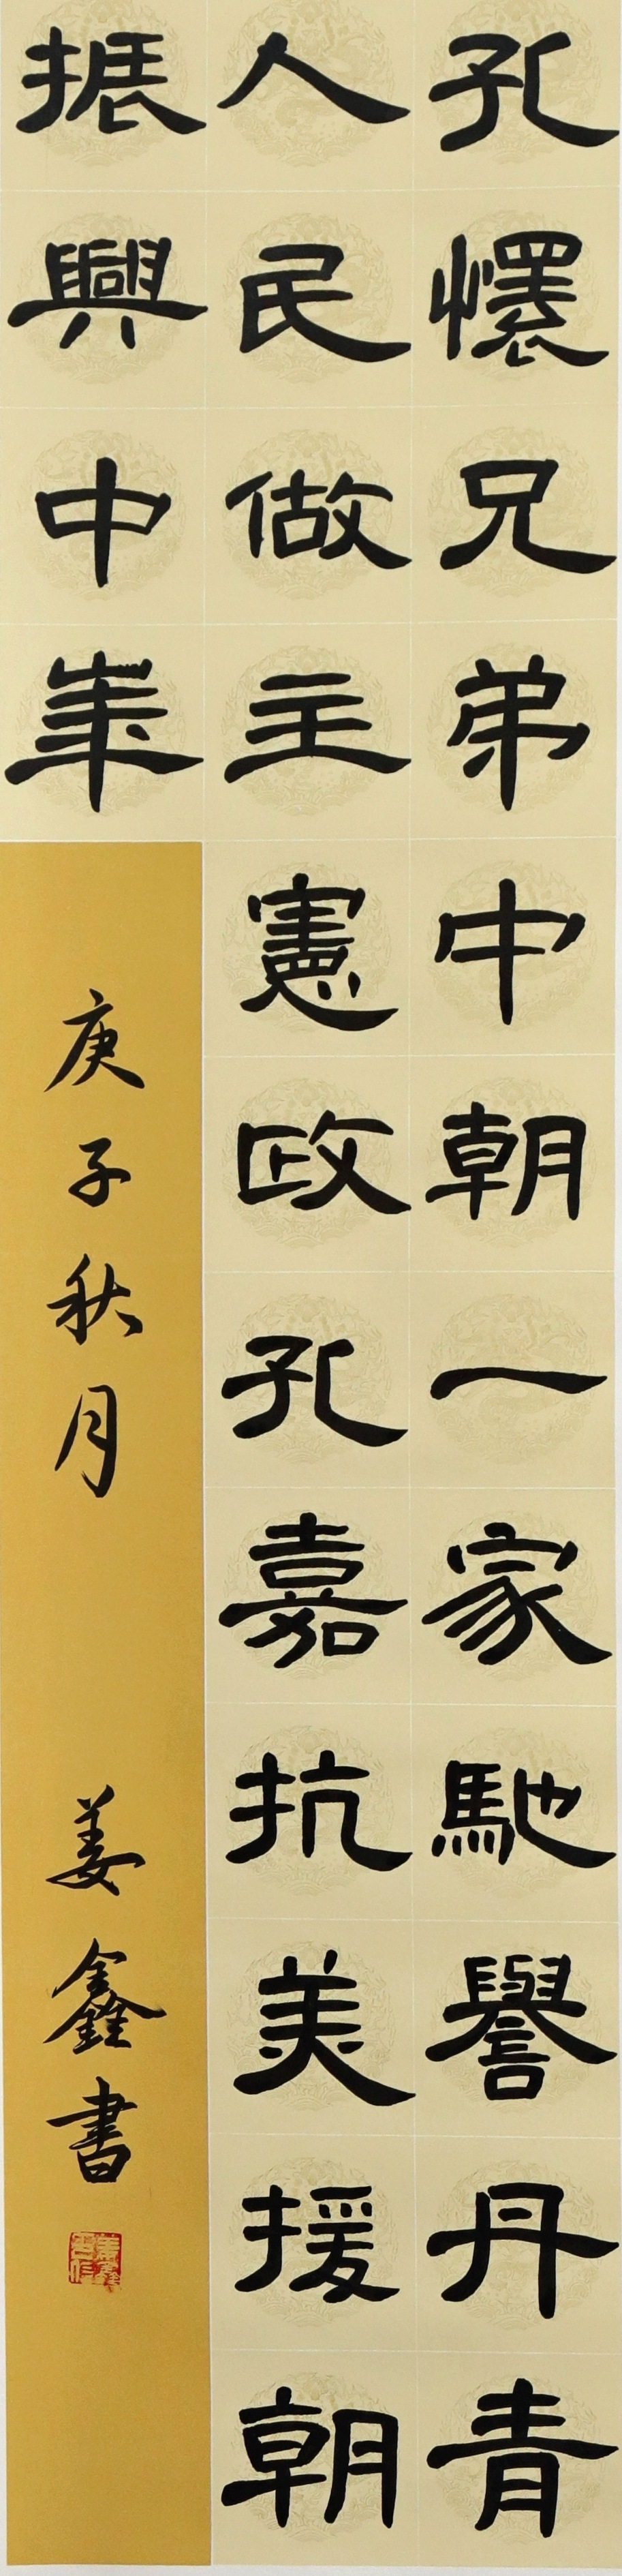 孔懷兄弟中朝一家馳譽丹青
人民做主憲政孔嘉抗美援朝
振興中華
庚子秋月
姜鑫書